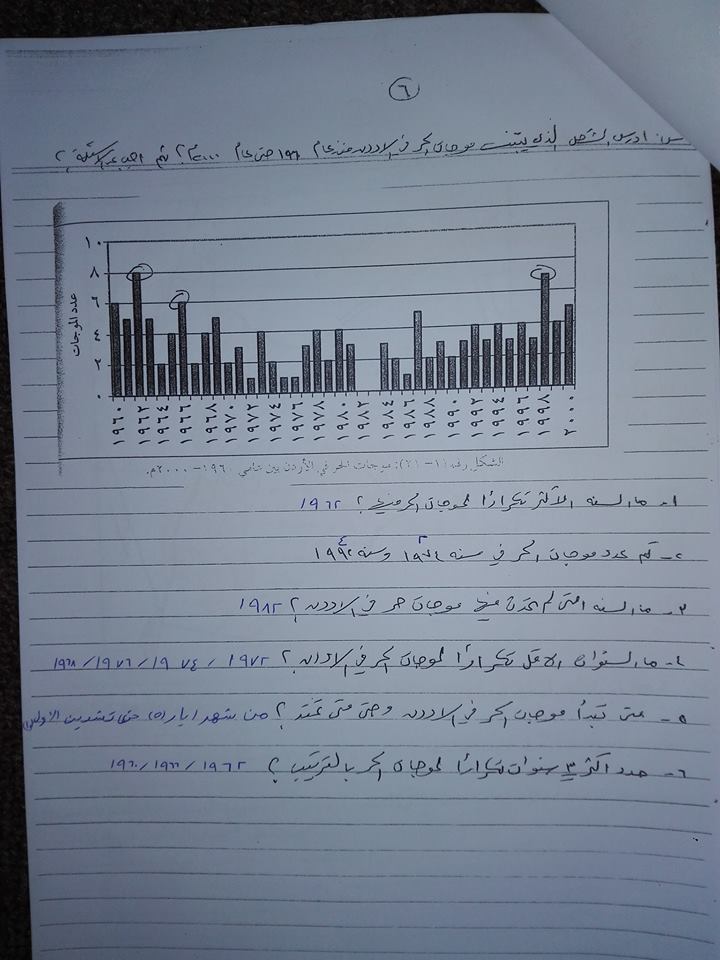 ٦
س: ادرس الشكل الذي يبين موجات الحر في الاردن منذ عام ١٩٦٠ حتى عام ٢٠٠٠م؟ ثم اجب عن الاسئلة؟
عدد الموجات
١٠
٨
٦
٤
٢
٠
١٩٦٠ ١٩٦٢ ١٩٦٤ ١٩٦٦ ١٩٦٨ ١٩٧٠ ١٩٧٢ ١٩٧٤ ١٩٧٦ ١٩٧٨ ١٩٨٠ ١٩٨٢ ١٩٨٤ ١٩٨٦ ١٩٨٨ ١٩٩٠ ١٩٩٢ ١٩٩٤ ١٩٩٦ ١٩٩٨ ٢٠٠٠
الشكل رقم (١-٢١): موجات الحر في الأردن بين عامي ١٩٦٠-٢٠٠٠م.
١- ما السنه الأكثر تكرارًا لموجات الحر فيها؟ ١٩٦٢
٢- كم عدد موجات الحر في سنه ١٩٧٤ وسنه ١٩٩٢
٢ ٤
٣- ما السنه التي لم تحدث فيها موجات حر في الاردن؟ ١٩٨٢
٤- ما السنوات الاقل تكرارًا لموجات الحر في الاردن؟ ١٩٧٢ / ١٩٧٤ / ١٩٧٦ /
٥- متى تبدأ موجات الحر في الاردن وحتى متى تمتد؟ من شهر ايار (٥) حتى تشرين الاول
٦- حدد اكثر ٣ سنوات تكرارًا لموجات الحر بالترتيب؟ ١٩٦٢ /